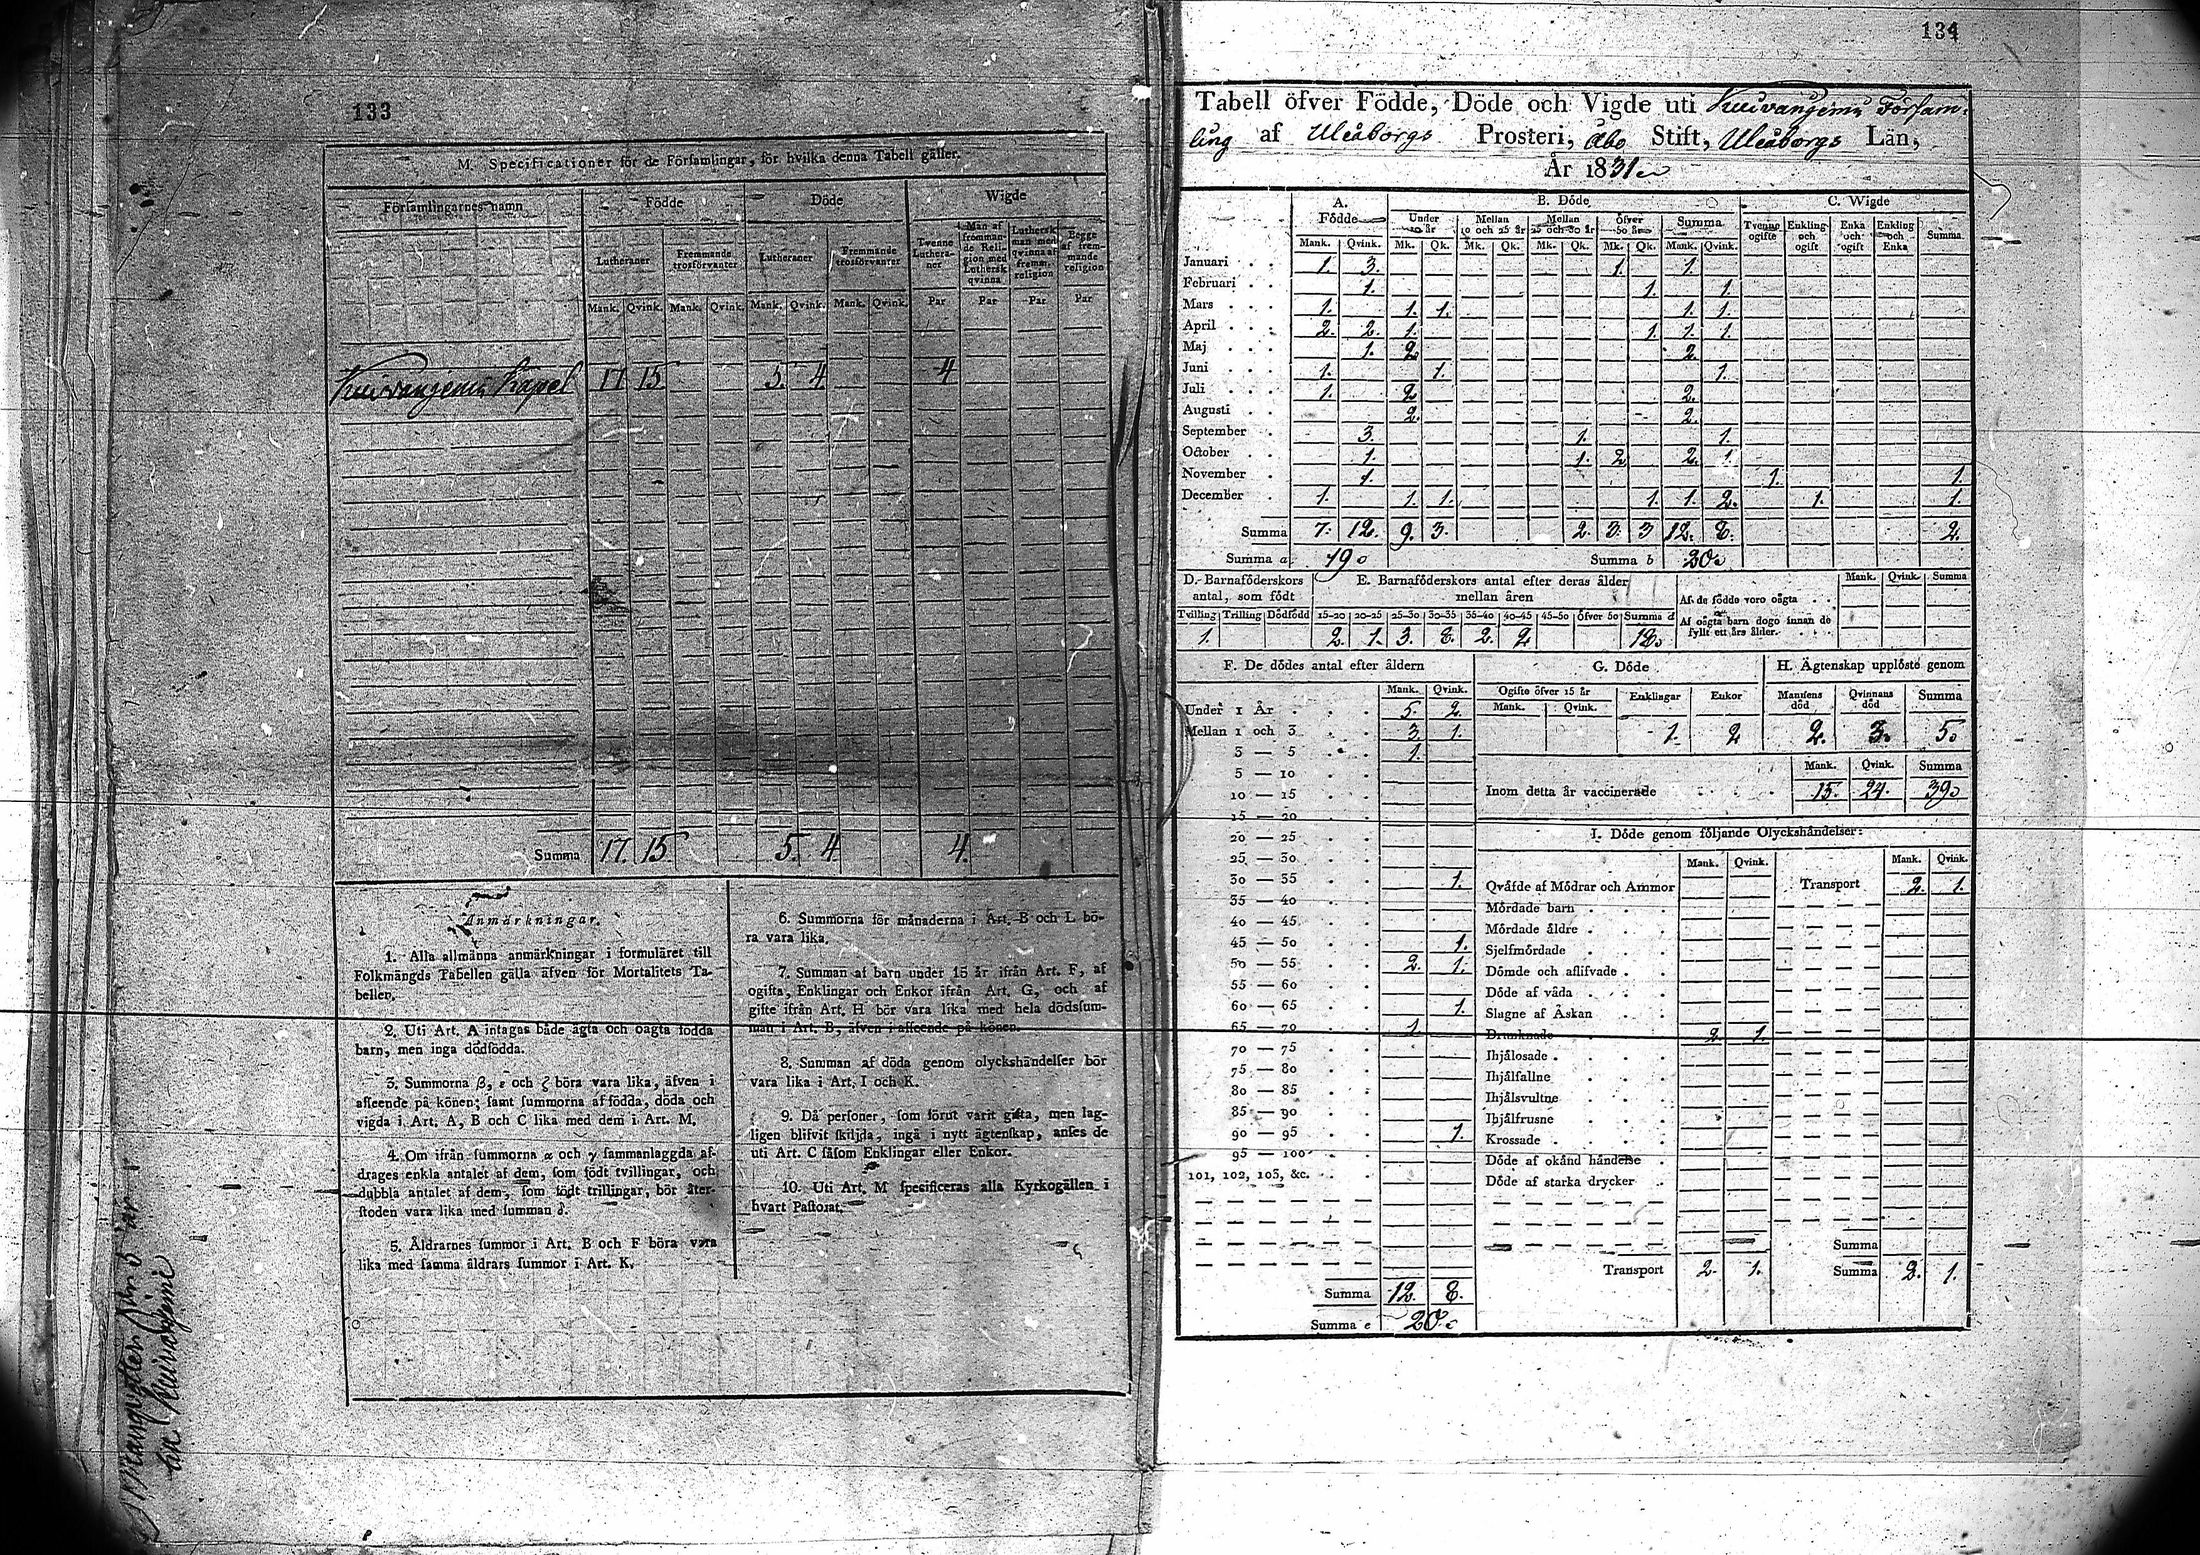 133
M. Specificationer för de Församlingar, för hvilka denna Tabell gäller.
Församlingarnes namn Födde Döde Wigde
Lutheraner Fremmande trosförvanter Lutheraner Fremmande trosförvanter Tvenne Lutheraner Man af fremmande Religion med Luthersk qvinna Luthersk man med qvinna af fremm. religion Begge af fremmande religion
Mank. Qvink. Mank. Qvink. Mank. Qvink. Mank. Qvink. Par Par Par Par
Kuivaniemi Kapel 17 15 5. 4 4
Summa 17. 15 5. 4 4.
Anmärkningar.
1. Alla allmänna anmärkningar i formuläret till
Folkmängds Tabellen gälla äfven för Mortalitets Ta-
bellen.
2. Uti Art. A intagas både ägta och oägta födda
barn, men inga dödfödda.
3. Summorna β, ε och ζ böra vara lika, äfven i
afseende på könen; samt summorna af födda, döda och
vigda i Art. A, B och C lika med dem i Art. M.
4. Om ifrån summorna α och γ sammanlaggda af-
drages enkla antalet af dem, som födt tvillingar, och
dubbla antalet af dem, som födt trillingar, bör åter-
stoden vara lika med summan δ.
5. Åldrarnes summor i Art. B och F böra vara
lika med samma åldrars summor i Art. K.
6. Summorna för månaderna i Art. B och L bö-
ra vara lika.
7. Summan af barn under 15 år ifrån Art. F, af
ogifta, Enklingar och Enkor ifrån Art. G, och af
gifte ifrån Art. H bör vara lika med hela dödssum-
man i Art. B, äfven i afseende på könen.
8. Summan af döda genom olyckshändelser bör
vara lika i Art. I och K.
9. Då personer, som förut varit gifta, men lag-
ligen blifvit skiljda, ingå i nytt ägtenskap, anses de
uti Art. C såsom Enklingar eller Enkor.
10. Uti Art. M specificeras alla Kyrkogällen i
hvart Pastorat.
134
Tabell öfver Födde, Döde och Vigde uti Kuivaniemi Försam-
ling af Uleåborgs Prosteri, Åbo Stift, Uleåborgs Län,
År 1831
A. Födde B. Döde C. Wigde
Under 10 år Mellan 10 och 25 år Mellan 25 och 50 år Öfver 50 år Summa Tvenne ogifte Enkling och ogift Enka och ogift Enkling och Enka Summa
Mank. Qvink. Mk. Qk. Mk. Qk. Mk. Qk. Mk. Qk. Mank. Qvink.
Januari 1. 3. 1. 1.
Februari 1. 1. 1.
Mars 1. 1. 1. 1. 1.
April 2. 2. 1. 1. 1. 1.
Maj 1. 2 2.
Juni 1. 1. 1.
Juli 1. 2 2.
Augusti 2. 2.
September 3. 1. 1.
October 1. 1. 2 2. 1.
November 1. 1. 1.
December 1. 1. 1. 1. 1. 2. 1. 1.
Summa 7. 12. 9. 3. 2. 3. 3 12. 8. 2.
Summa a 19 Summa b 20
D. Barnaföderskors antal, som födt E. Barnaföderskors antal efter deras ålder mellan åren Mank. Qvink. Summa
Tvilling Trilling Dödfödd 15-20 20-25 25-30 30-35 35-40 40-45 45-50 Öfver 50 Summa d
1. 2. 1. 3. 8. 2. 2 18
Af de födde voro oägta
Af oägta barn dogo innan de
fyllt ett års ålder.
F. De dödes antal efter åldern
Mank. Qvink.
Under 1 År 5. 2.
Mellan 1 och 3 3. 1.
3 — 5 1.
5 — 10
10 — 15
15 — 20
20 — 25
25 — 30
30 — 35 1.
35 — 40
40 — 45
45 — 50 1.
50 — 55 2. 1.
55 — 60
60 — 65 1.
65 — 70 1.
70 — 75
75 — 80
80 — 85
85 — 90
90 — 95 1.
95 — 100
101, 102, 103, &c.
Summa 12. 8.
Summa e 20
G. Döde H. Ägtenskap upplöste genom
Ogifte öfver 15 år Enklingar Enkor Mannens död Qvinnans död Summa
Mank. Qvink.
1. 2 2. 3. 5
Mank. Qvink. Summa
Inom detta år vaccinerade 15. 24. 39
I. Döde genom följande Olyckshändelser:
Mank. Qvink. Mank. Qvink.
Qväfde af Mödrar och Ammor Transport 2. 1.
Mördade barn
Mördade äldre
Sjelfmördade
Dömde och aflifvade
Döde af våda
Slagne af Åskan
Drunknade 2. 1.
Ihjälosade
Ihjälfallne
Ihjälsvultne
Ihjälfrusne
Krossade
Döde af okänd händelse
Döde af starka drycker
Summa
Transport 2. 1. Summa 2. 1.